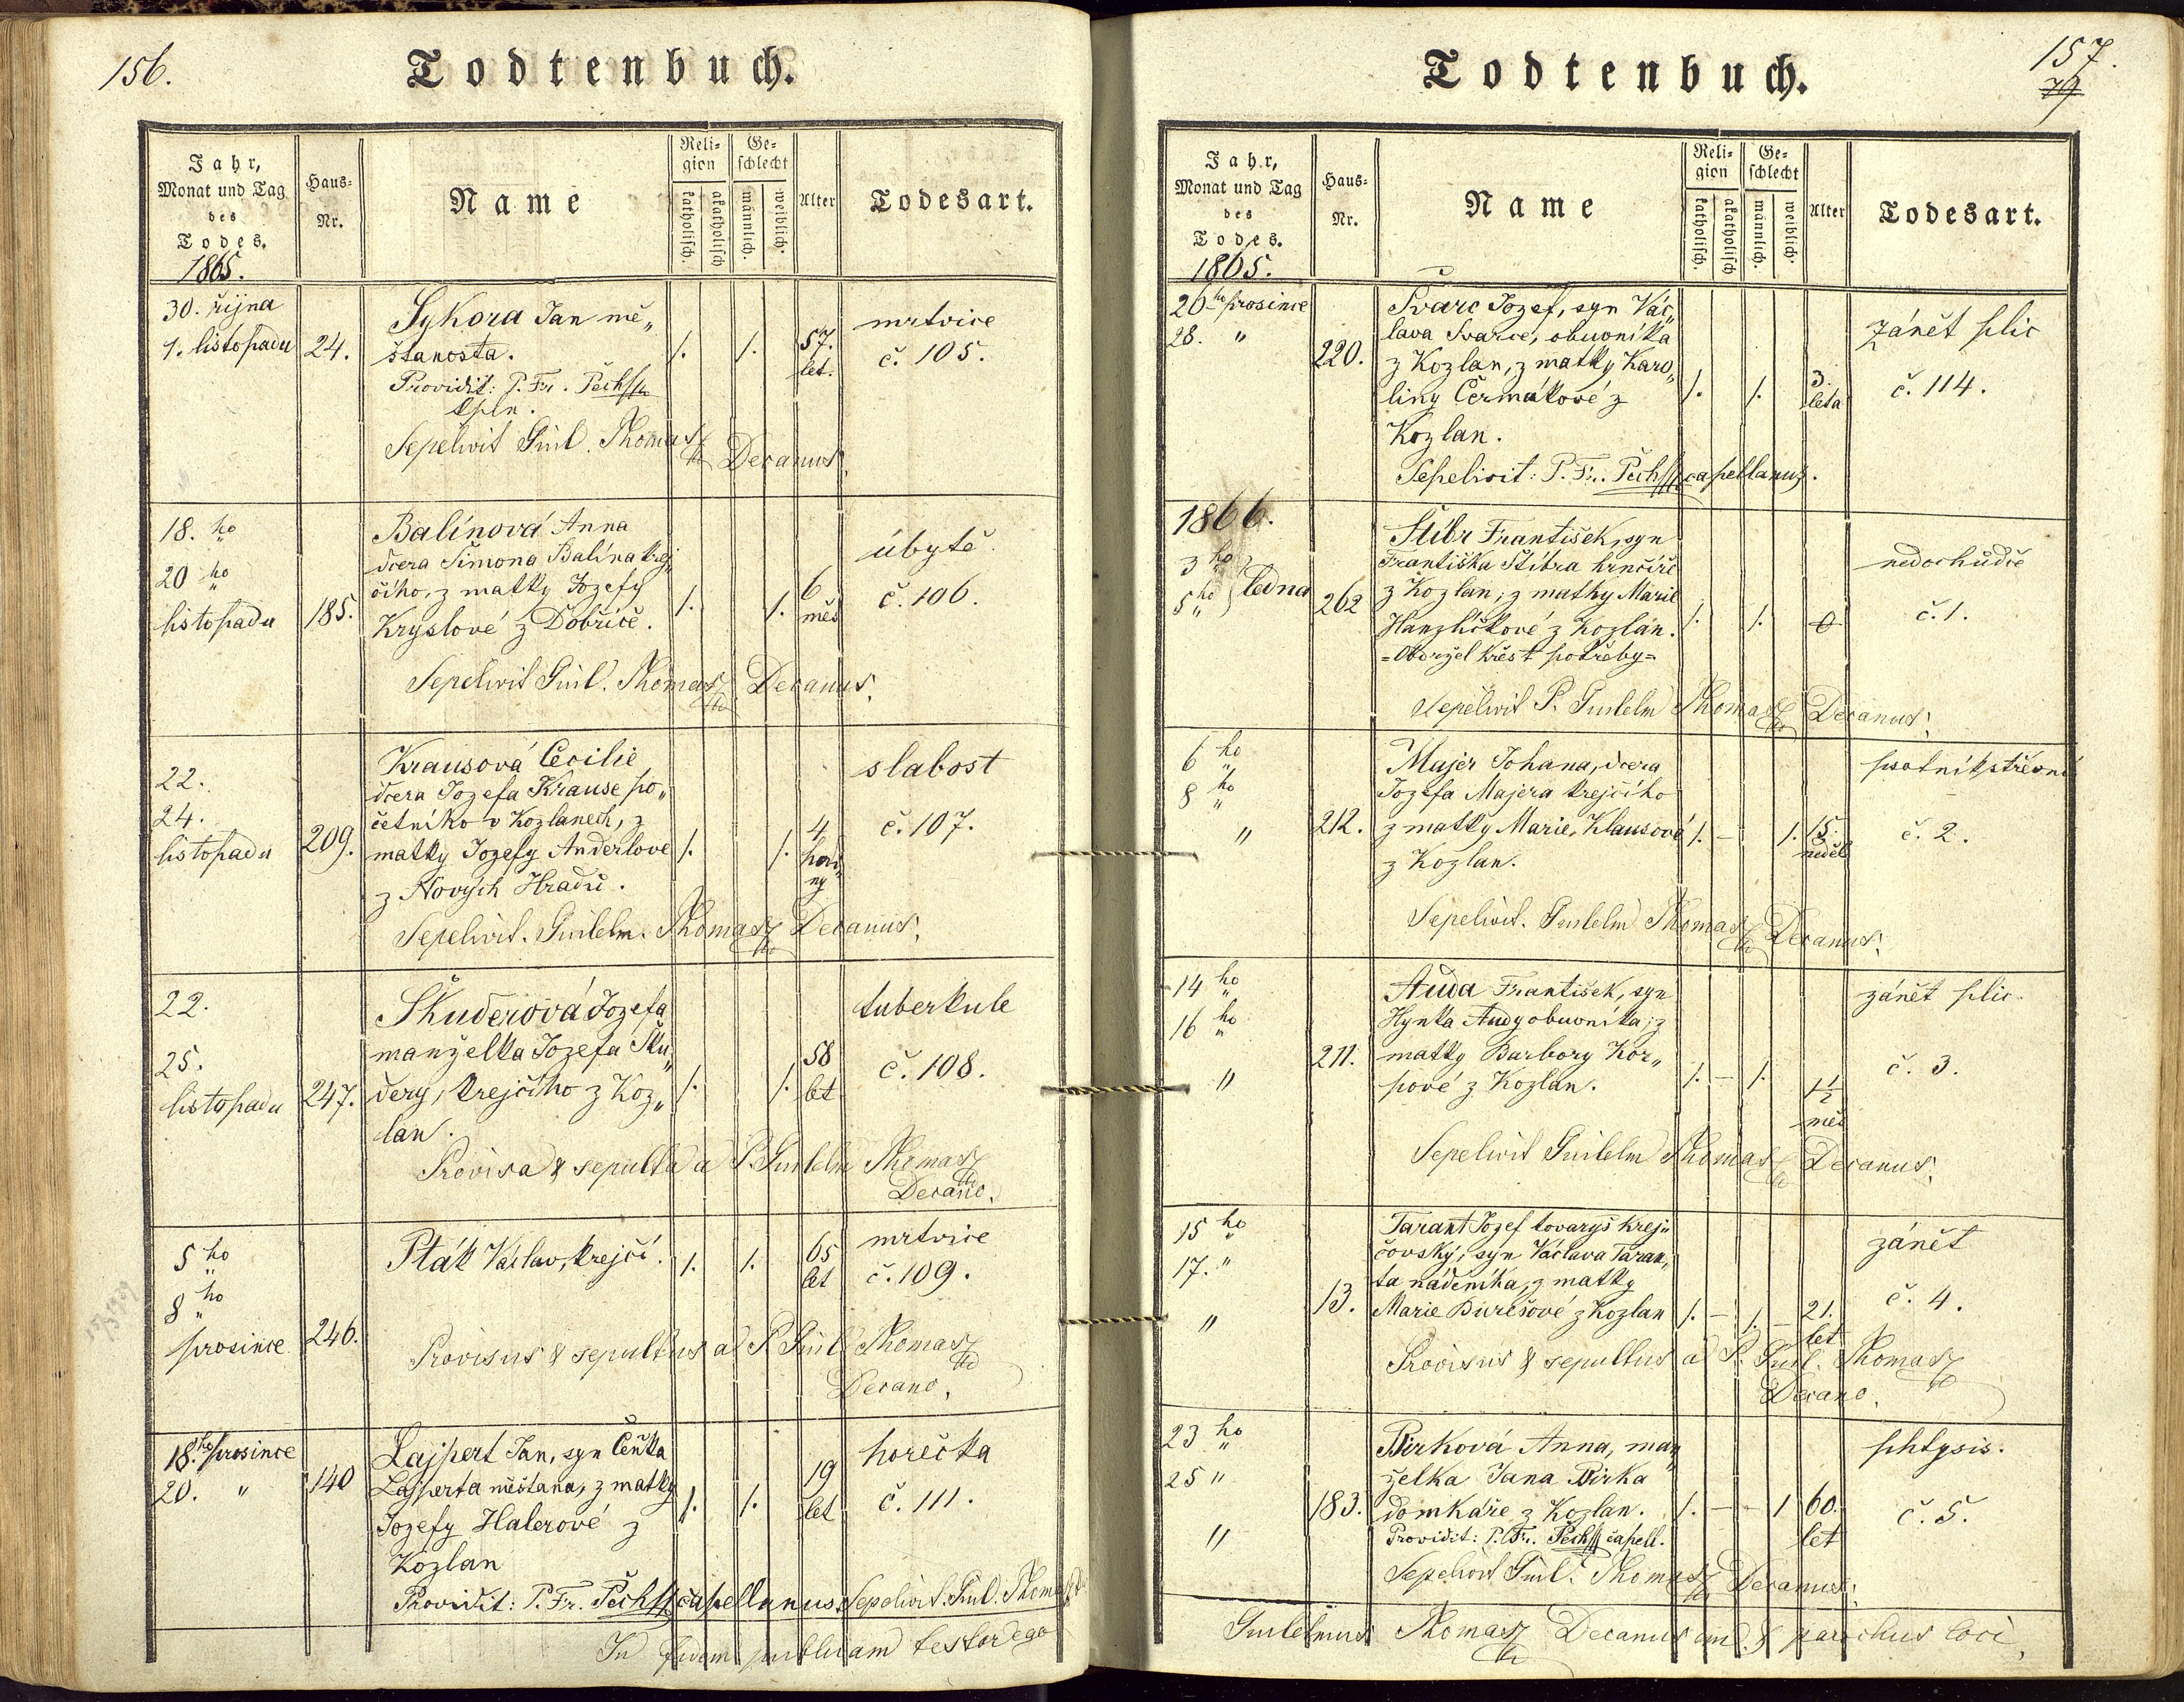 156.
Todtenbuch.
Jahr,
Monat und Tag
des
Todes.
1865.
Haus=
Nr.
Name
Reli=
gion
katholisch.
akatholisch
Ge=
schlecht
männlich.
weiblich.
Alter
Todesart.
30. října
1. listopadu
24.
Sykora Jan mě„
štanosta.
Providit: P. Fr. Pech
kpln.
Sepelivit Guil. Thomas Decanus.
1.
1.
57.
let.
mrtvice
č. 105.
18. ho
20 ho
listopadu
185.
Balínová Anna
dcera Šimona Balína krej„
čího, z matky Jozefy
Kryslové z Dobříče.
Sepelivit Guil. Thomas Decanus.
1.
1.
6
měs
úbytě.
č. 106.
22.
24.
listopadu
209.
Krausová Cecilie
dcera Jozefa Krause po„
četního v Kozlanech, z
matky Jozefy Anderlové
z Nových Hradů.
Sepelivit. Guilelm. Thomas Decanus.
1.
1.
4
hodi„
ny
slabost
č. 107.
22.
25.
listopadu
247.
Škuderová Jozefa
manželka Jozefa Šku„
dery, krejčího z Koz„
lan.
Provisa & sepulta a P. Guilelm Thomas
Decano.
1.
1.
58
let
tuberkule
č. 108.
5 ho
8 ho
prosince
246.
Pták Václav, krejčí.
Provisus & sepultus a P. Guil Thomas
Decano.
1.
1.
65
let
mrtvice
č. 109.
18. ho prosince
20. "
140
Lajpert Jan, syn Čeňka
Lajperta měšťana, z matky
Jozefy Halerové z
Kozlan
Providit: P. Fr. Pech capellanus. Sepelivit. Guil. Thomas
1.
1.
19
let
horečka
č. 111.
In fidem publicam testor ego
157.
79
Todtenbuch.
Jahr,
Monat und Tag
des
Todes.
1865.
Haus=
Nr.
Name
Reli=
gion
katholisch.
akatholisch
Ge=
schlecht
männlich.
weiblich.
Alter
Todesart.
26 ho prosince
28. "
220.
Švarc Jozef, syn Vác„
lava Švarce, obuvníka
z Kozlan, z matky Karo„
liny Čermákové z
Kozlan.
Sepelivit: P. Fr. Pech capellanus.
1.
1.
3.
leta
zánět plic
č. 114.
1866.
3 ho
5 ho ledna
262
Štibr František, syn
Františka Štibra hrnčíře
z Kozlan, z matky Marie
Hanzlíčkové z Kozlan.
=Obdržel křest potřeby=
Sepelivit P. Guilelm Thomas Decanus.
1.
1.
0
nedochůdče
č. 1.
6 ho
8 ho
"
212.
Majer Johana, dcera
Jozefa Majera krejčího
z matky Marie, Klausové
z Kozlan.
Sepelivit. Guilelm Thomas Decanus.
1. –
1.
15.
neděl
psotník střevní
č. 2.
14 ho
16 ho
"
211.
Auda František, syn
Hynka Audy obuvníka, z
matky Barbory Kor„
pové z Kozlan.
Sepelivit Guilelm Thomas Decanus.
1. –
1.
1 1/2
měs
zánět plic.
č. 3.
15 ho
17. "
"
13.
Tarant Jozef tovaryš krej„
čovský, syn Václava Taran„
ta nádeníka, z matky
Marie Burešové z Kozlan
Provisus & sepultus a P. Guil. Thomas
Decano.
1. –
1. –
21.
let
zánět
č. 4.
23 ho
25 "
"
183.
Pirková Anna, man„
želka Jana Pirka
domkáře z Kozlan.
Providit: P. Fr. Pech capell.
Sepelivit Guil. Thomas Decanus.
1. –
– 1
60.
let
phtysis.
č. 5.
Guilelmus Thomas Decanus & parochus loci.